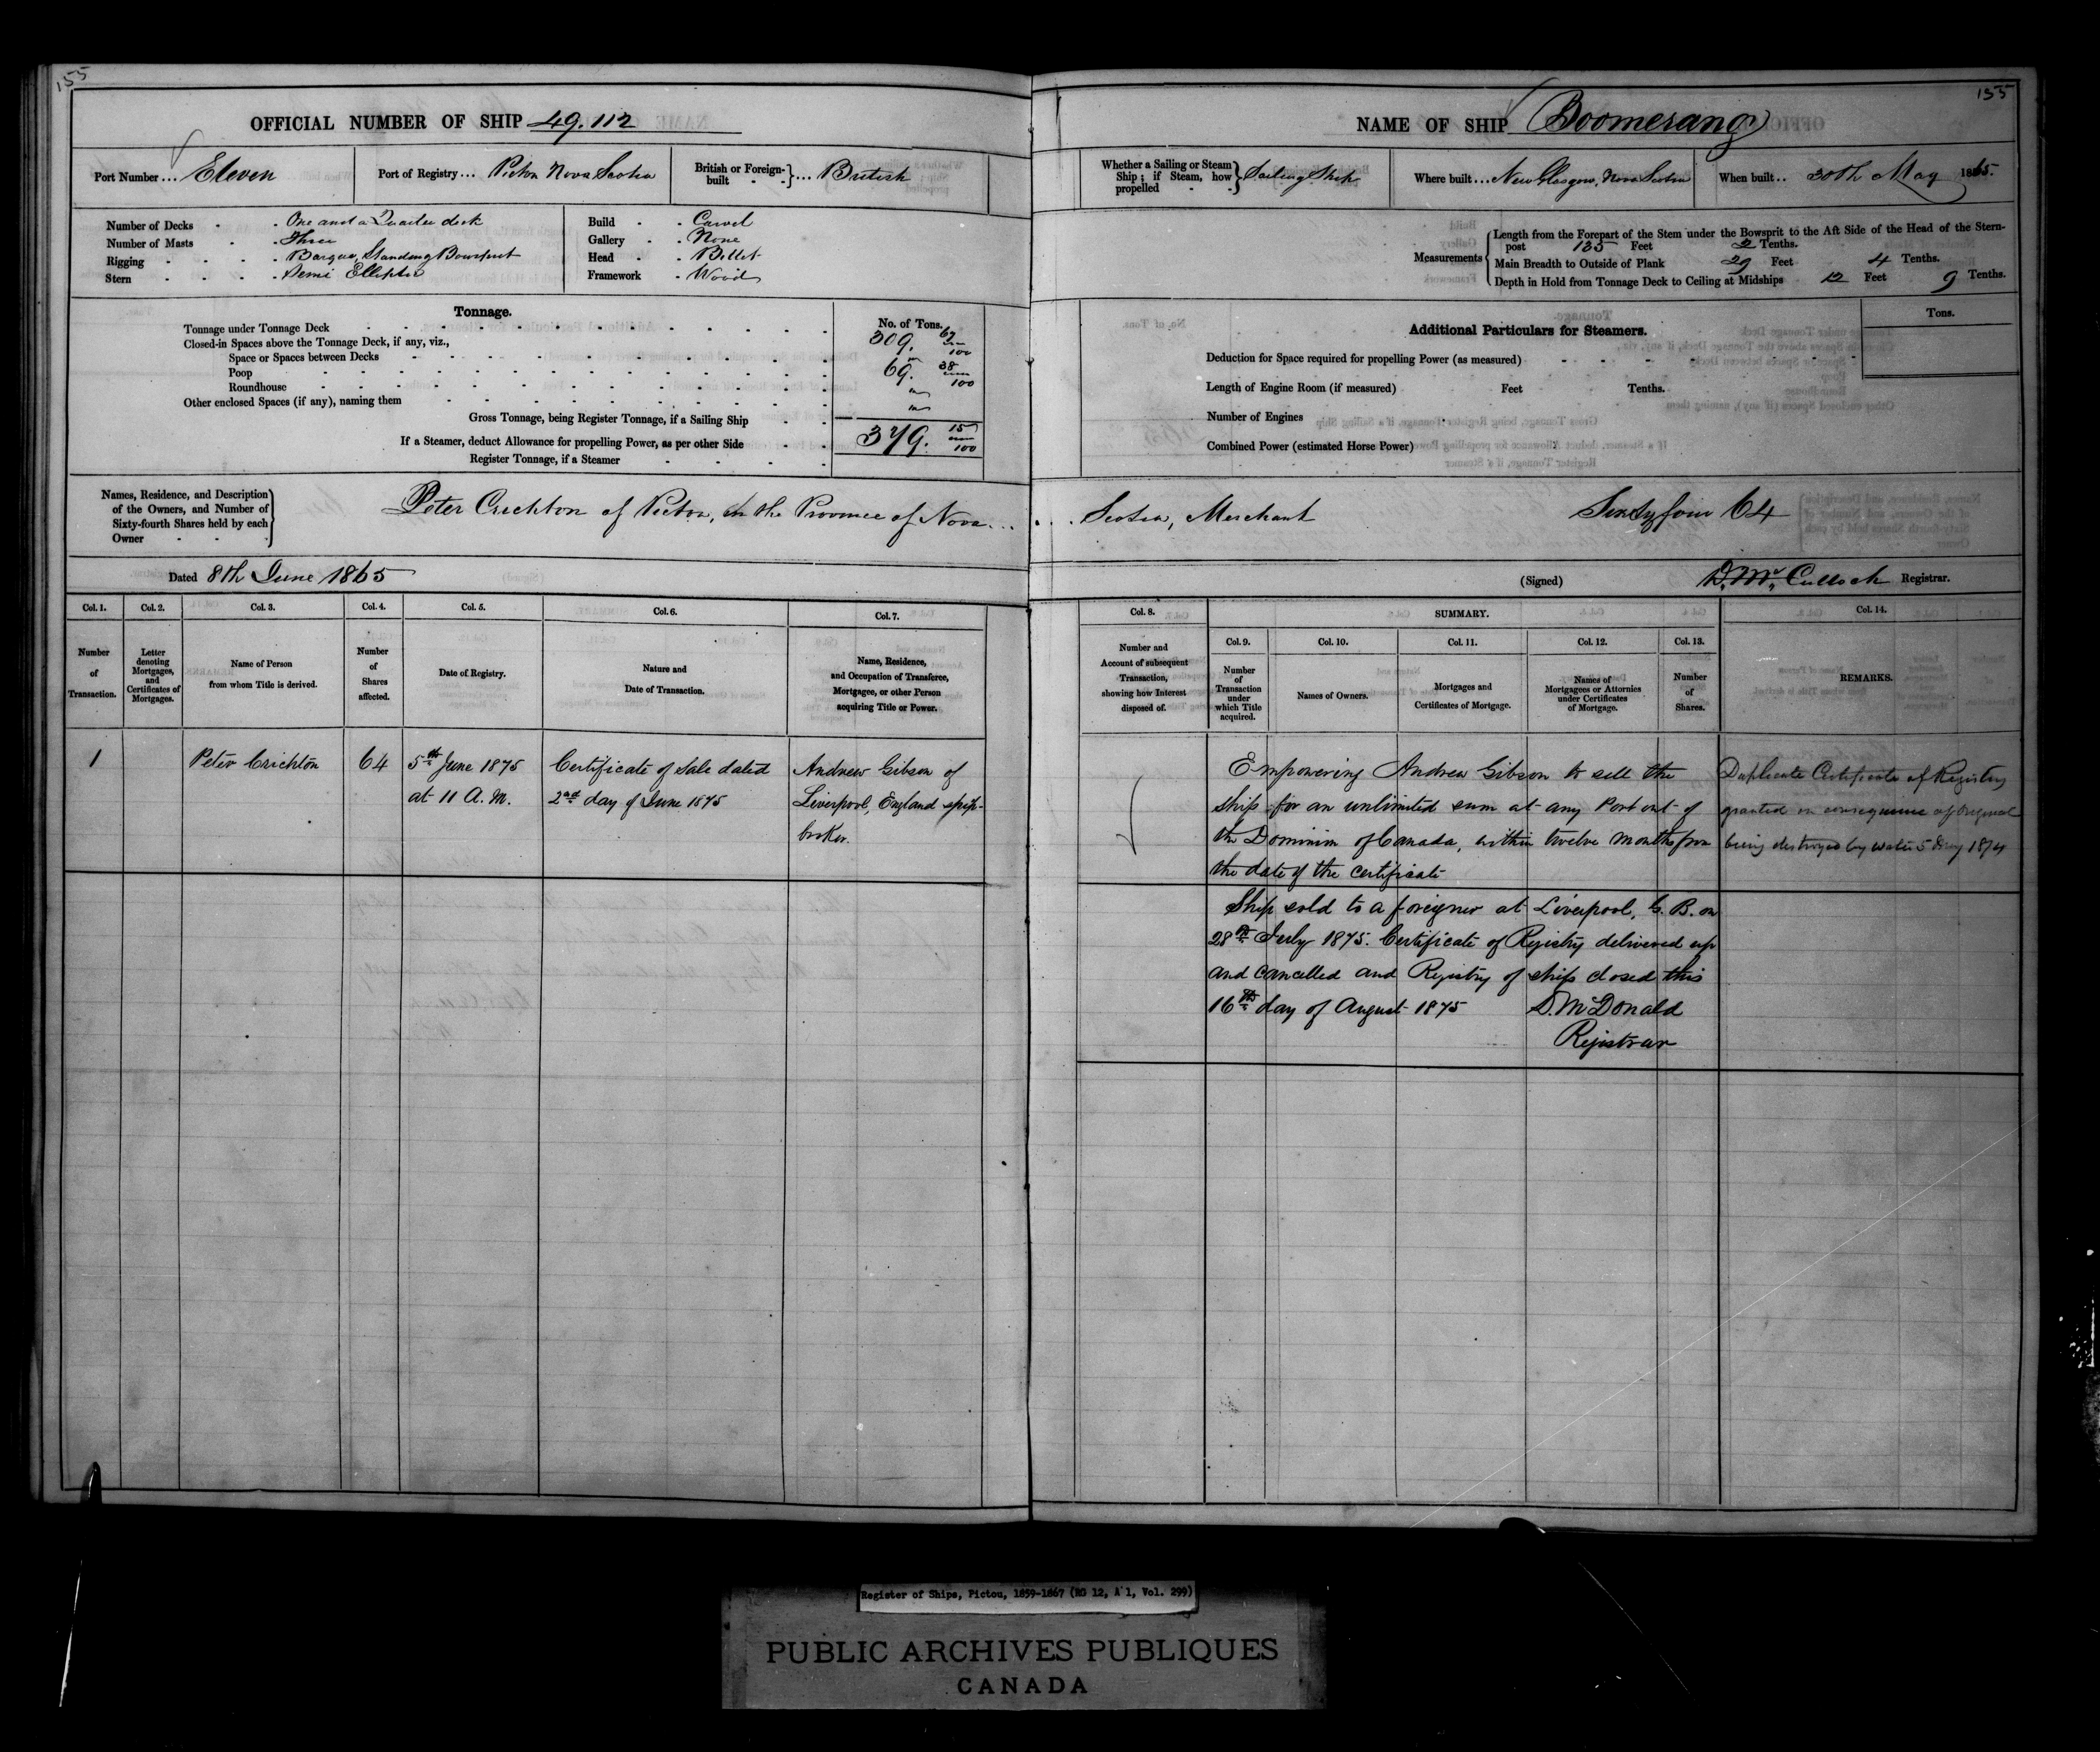 155
OFFICIAL NUMBER OF SHIP 49.112
Port Number... Eleven
Port of Registry... Pictou Nova Scotia
British or Foreign-built - - } ... British
Number of Decks - . One and a Quarter deck
Number of Masts - - . Three
Rigging - - - . Barque, Standing Bowsprit
Stern - - - . Semi Elliptic
Build - . Carvel
Gallery - . None
Head - . Billet
Framework . Wood
Tonnage.
No. of Tons.
Tonnage under Tonnage Deck 309.
Closed-in Spaces above the Tonnage Deck, if any, viz.,
Space or Spaces between Decks
Poop 69. 38/100
Roundhouse
Other enclosed Spaces (if any), naming them
Gross Tonnage, being Register Tonnage, if a Sailing Ship
379. 15/100
If a Steamer, deduct Allowance for propelling Power, as per other Side
Register Tonnage, if a Steamer
Names, Residence, and Description of the Owners, and Number of Sixty-fourth Shares held by each Owner
Peter Crichton of Pictou, in the Province of Nova...
Dated 8th June 1865
Col. 1. Col. 2. Col. 3. Col. 4. Col. 5. Col. 6. Col. 7.
Number of Transaction.
Letter denoting Mortgages, and Certificates of Mortgages.
Name of Person from whom Title is derived.
Number of Shares affected.
Date of Registry.
Nature and Date of Transaction.
Name, Residence, and Occupation of Transferee, Mortgagee, or other Person acquiring Title or Power.
1
Peter Crichton
64
5th June 1875
at 11 A.M.
Certificate of Sale dated
2nd day of June 1875
Andrew Gibson of
Liverpool, England ship-
broker.
155
NAME OF SHIP Boomerang
Whether a Sailing or Steam Ship; if Steam, how propelled - - } Sailing Ship
Where built... New Glasgow, Nova Scotia
When built.. 30th May 1865.
Measurements
Length from the Forepart of the Stem under the Bowsprit to the Aft Side of the Head of the Stern-
post 135 Feet 2 Tenths.
Main Breadth to Outside of Plank 29 Feet 4 Tenths.
Depth in Hold from Tonnage Deck to Ceiling at Midships 12 Feet 9 Tenths.
Additional Particulars for Steamers.
Tons.
Deduction for Space required for propelling Power (as measured)
Length of Engine Room (if measured) Feet Tenths.
Number of Engines
Combined Power (estimated Horse Power)
... Scotia, Merchant Sixty four 64
(Signed) D. McCulloch Registrar.
Col. 8. SUMMARY. Col. 14.
Col. 9. Col. 10. Col. 11. Col. 12. Col. 13.
Number and Account of subsequent Transaction, showing how Interest disposed of.
Number of Transaction under which Title acquired.
Names of Owners.
Mortgages and Certificates of Mortgage.
Names of Mortgagees or Attornies under Certificates of Mortgage.
Number of Shares.
REMARKS.
Empowering Andrew Gibson to sell the
ship for an unlimited sum at any Port out of
the Dominion of Canada, within twelve months from
the date of the certificate
Duplicate Certificate of Registry
granted in consequence of Original
being destroyed by water 5 1874
Ship sold to a foreigner at Liverpool, G. B. on
28th July 1875. Certificate of Registry delivered up
and cancelled and Registry of ship closed this
16th day of August 1875 D. McDonald
Registrar
Register of Ships, Pictou, 1859-1867 (RG 12, A 1, Vol. 299)
PUBLIC ARCHIVES PUBLIQUES
CANADA